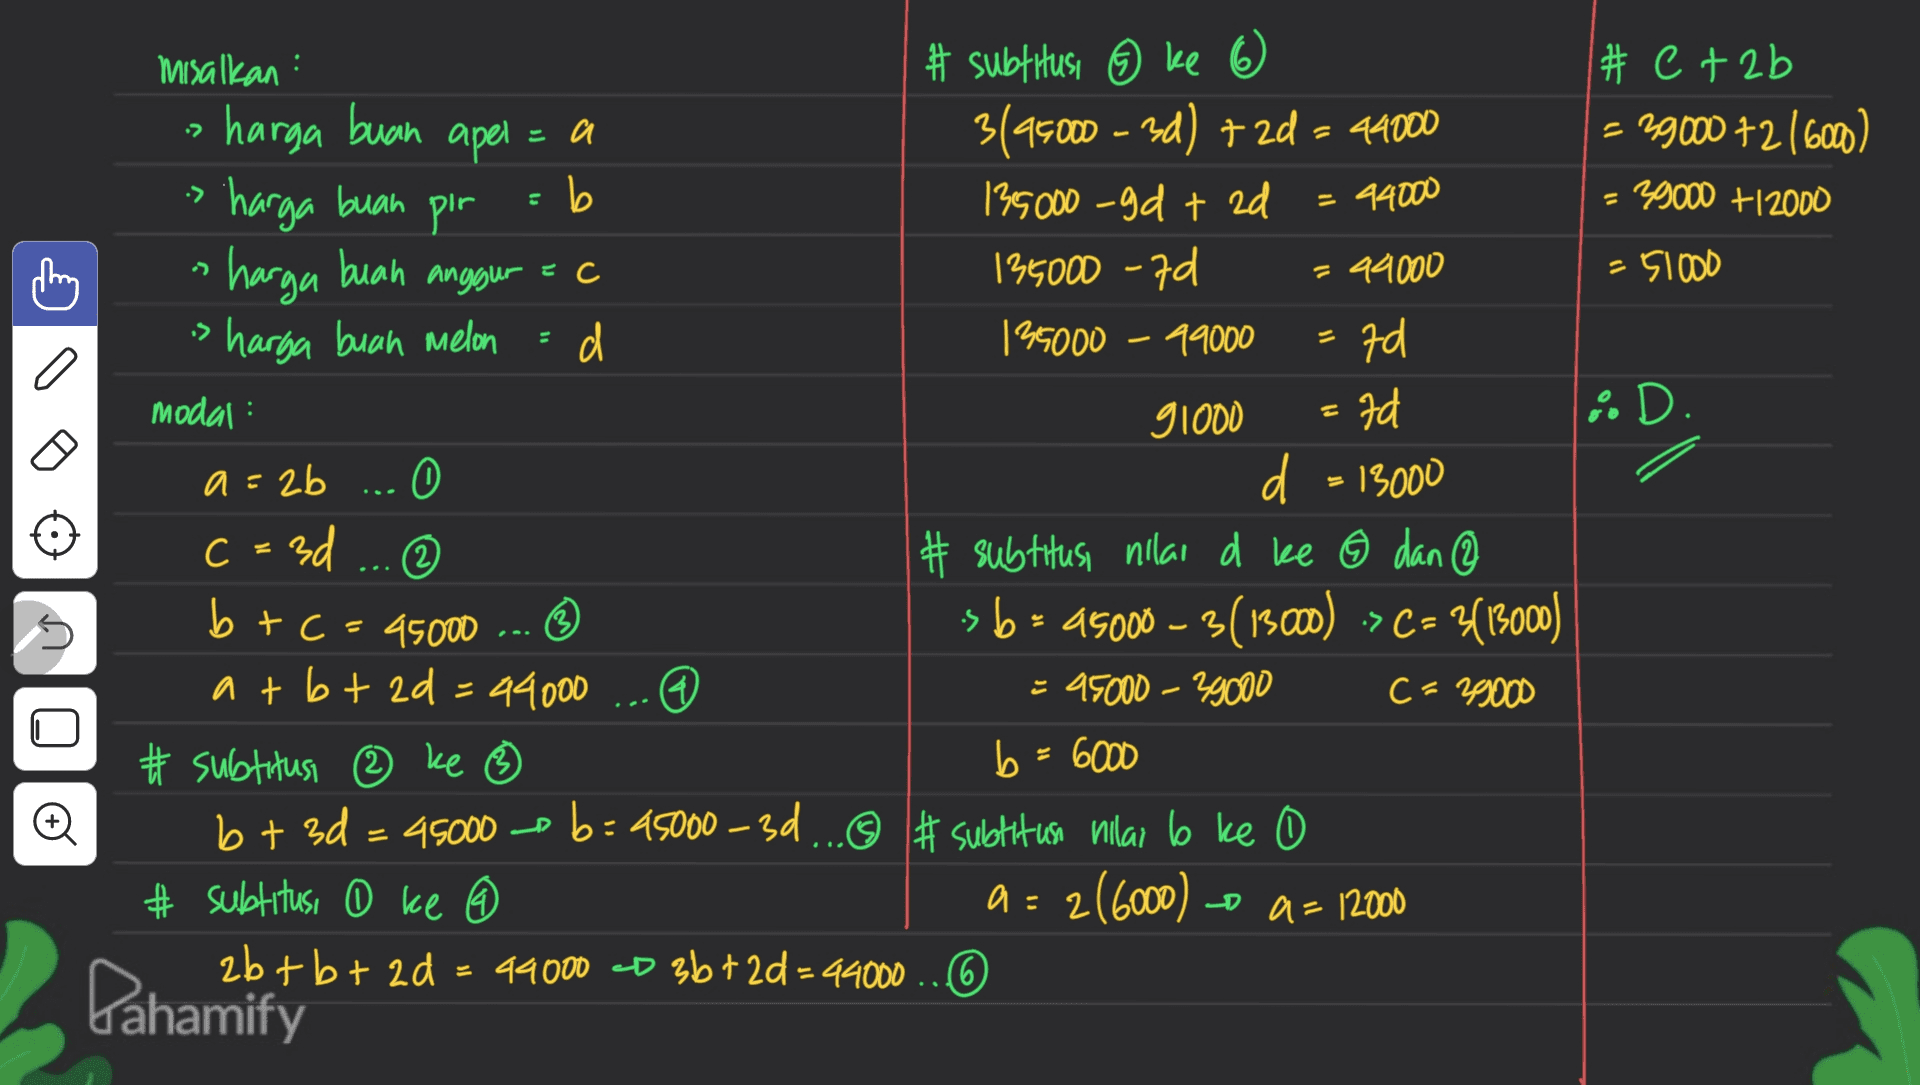 misalkan :
-> harga buah apel = a
-> harga buah pir = b
-> harga buah anggur = c
-> harga buah melon = d
modal :
a = 2b ... ①
c = 3d ... ②
b + c = 45000 ... ③
a + b + 2d = 44000 ... ④
# subtitusi ② ke ③
b + 3d = 45000 → b = 45000 - 3d ... ⑤
# subtitusi ① ke ④
2b + b + 2d = 44000 → 3b + 2d = 44000 ... ⑥
# subtitusi ⑤ ke ⑥
3(45000 - 3d) + 2d = 44000
135000 - 9d + 2d = 44000
135000 - 7d = 44000
135000 - 44000 = 7d
91000 = 7d
d = 13000
# subtitusi nilai d ke ⑤ dan ②
-> b = 45000 - 3(13000) -> c = 3(13000)
= 45000 - 39000 c = 39000
b = 6000
# subtitusi nilai b ke ①
a = 2(6000) → a = 12000
# c + 2b
= 39000 + 2(6000)
= 39000 + 12000
= 51000
∴ D.
Pahamify